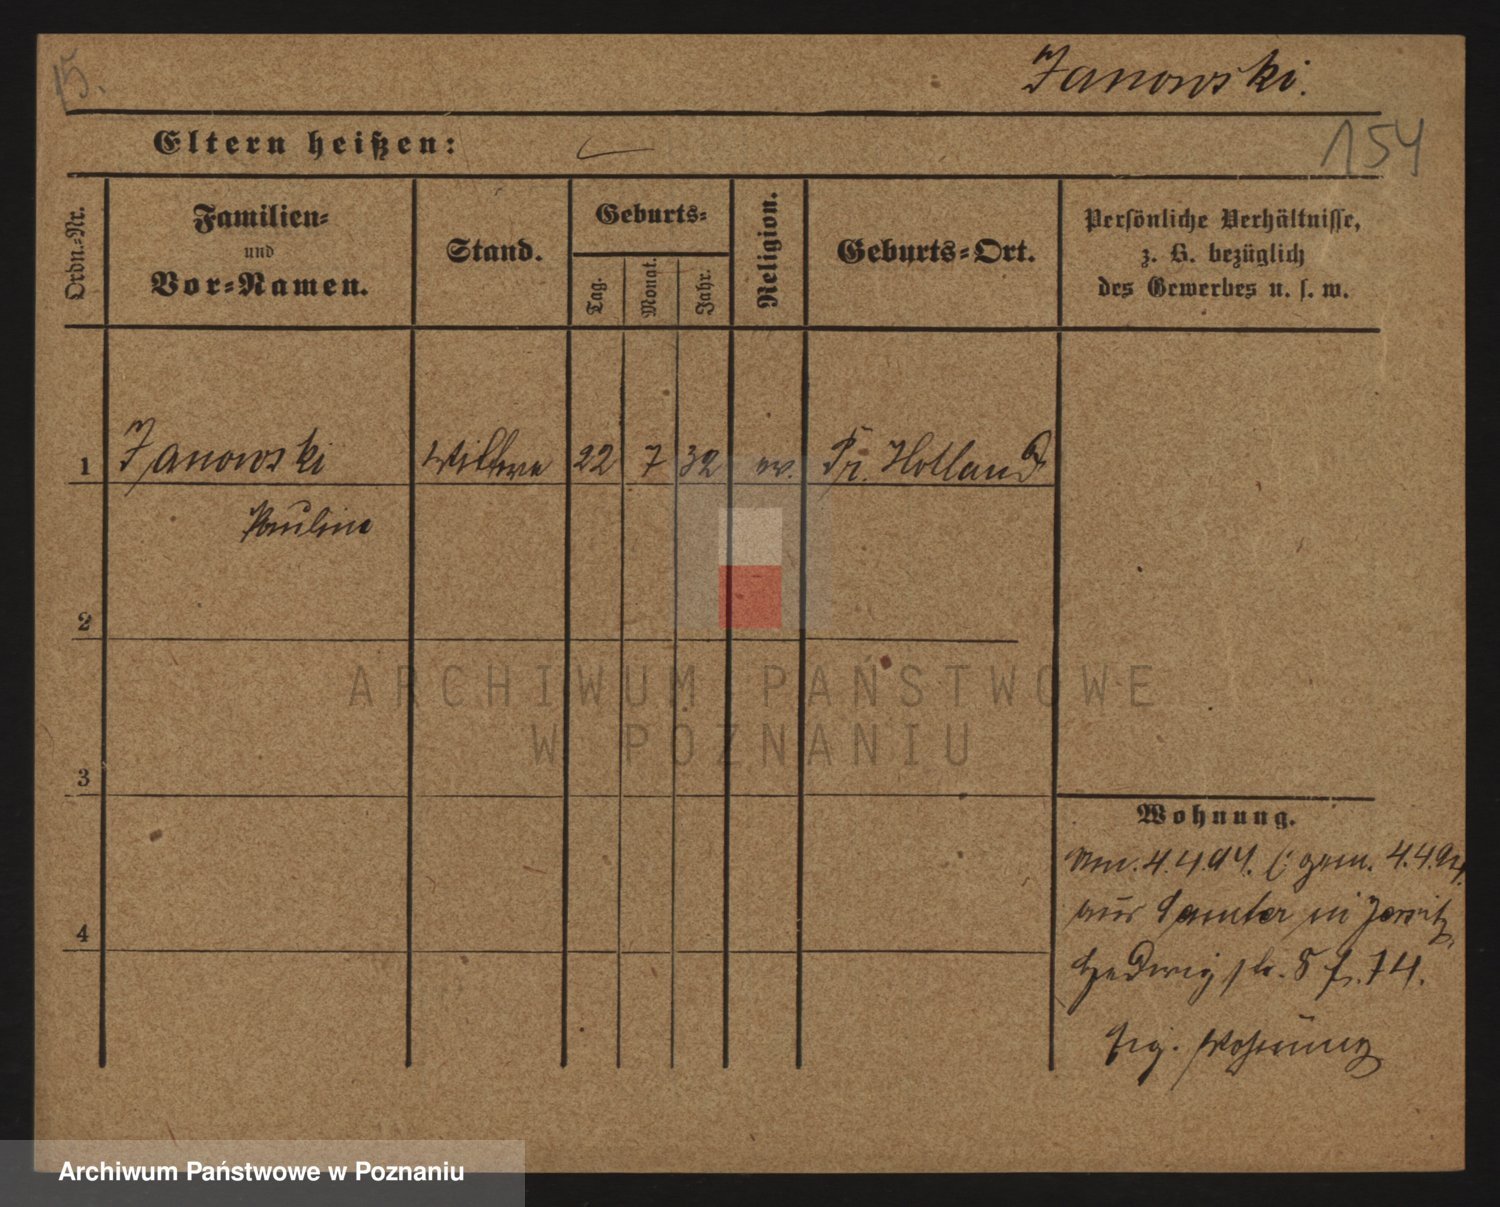 15.
Janowski.
154
Eltern heißen:
Ordn.-Nr.
Familien-
und
Vor-Namen.
Stand.
Geburts-
Tag.
Monat.
Jahr.
Religion.
Geburts-Ort.
Persönliche Verhältnisse,
z. B. bezüglich
des Gewerbes u. s. w.
1 Janowski Wittwe 22 7 32 ev. Pr. Holland
Pauline
2
3
4
Wohnung.
An. 4.4.94. (: gem. 4.4.94.
aus Samter in Jersitz,
Hedwig str. 8 14.
eig. Wohnung
ARCHIWUM PAŃSTWOWE
W POZNANIU
Archiwum Państwowe w Poznaniu